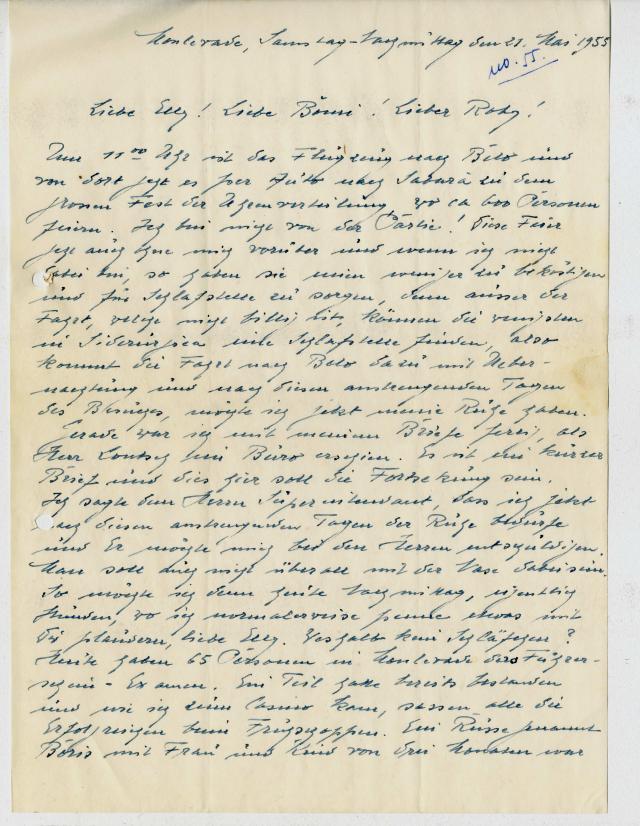 Monlevade, Samstag-Nachmittag den 21. Mai 1955
no. 55.
Liebe Elly! Liebe Bömi! Lieber Roby!
Um 11 00 Uhr ist das Flugzeug nach Belo und
von dort geht es per Auto nach Sabará zu dem
grossen Fest der Uhrenverteilung, wo ca 600 Personen
feiern. Ich bin nicht von der Partie! Diese Feier
geht auch ohne mich vorüber und wenn ich nicht
dabei bin, so haben sie einen weniger zu beköstigen
und für Schlafstelle zu sorgen, denn ausser der
Fahrt, welche nicht billig ist, können die wenigsten
in Siderurgica eine Schlafstelle finden, also
kommt die Fahrt nach Belo dazu mit Ueber-
nachtung und nach diesen anstrengenden Tagen
des Besuches, möchte ich jetzt meine Ruhe haben.
Gerade war ich mit meinem Briefe fertig, als
Herr Lontsch im Büro erschien. Es ist ein kurzer
Brief und dies hier soll die Fortsetzung sein.
Ich sagte dem Herrn Superintendant, dass ich jetzt
nach diesen anstrengenden Tagen der Ruhe bedürfe
und Er möchte mich bei den Herren entschuldigen.
Man soll auch nicht überall mit der Nase dabeisein.
So möchte ich denn heute Nachmittag, eigentlich
Stunden, wo ich normalerweise penne etwas mit
Dir plaudern, liebe Elly. Weshalb kein Schläfchen?
Heute haben 65 Personen in Monlevade das Führer-
schein-Examen. Ein Teil hatte bereits bestanden
und wie ich zum Casino kam, sassen alle die
Erfolgreichen beim Frühschoppen. Ein Russe genannt
Boris mit Frau und Kind von drei Monaten war